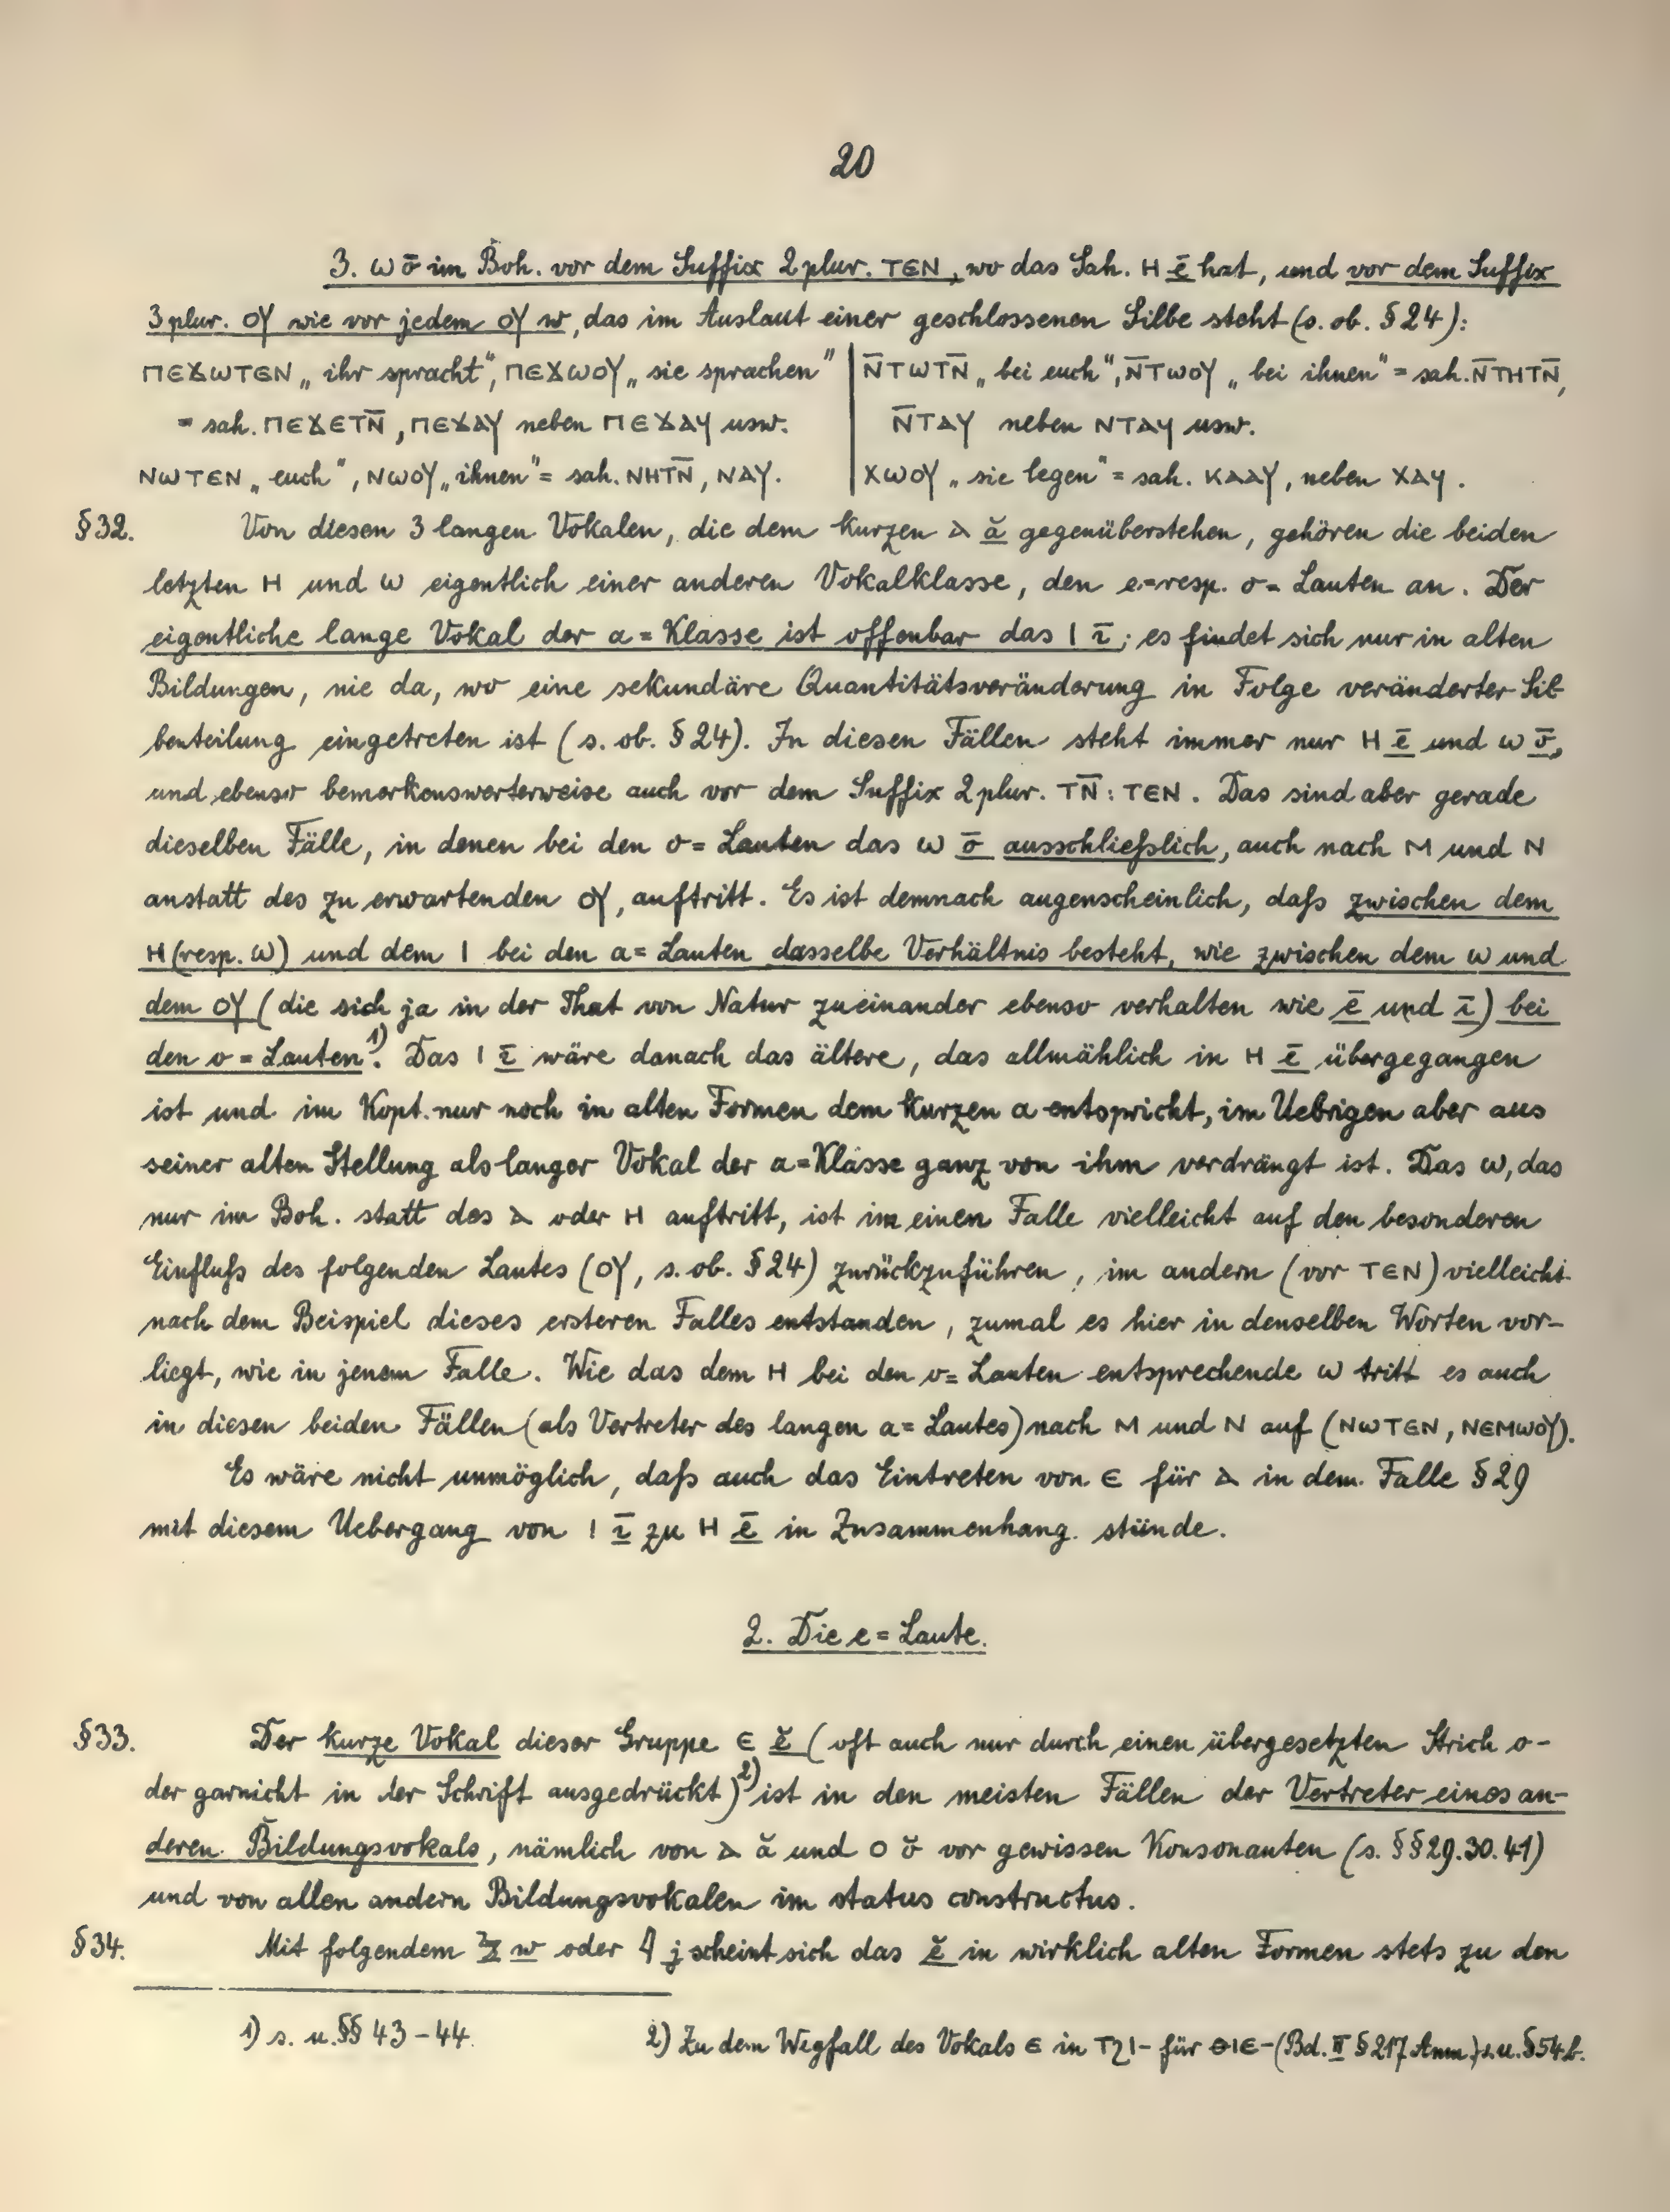 20
3. ⲱ ō im Boh. vor dem Suffix 2 plur. ⲧⲉⲛ, wo das Sah. ⲏ ē hat, und vor dem Suffix
3 plur. ⲟⲩ wie vor jedem ⲟⲩ w, das im Auslaut einer geschlossenen Silbe steht (s. ob. § 24):
ⲡⲉϫⲱⲧⲉⲛ „ihr spracht“, ⲡⲉϫⲱⲟⲩ „sie sprachen“
= sah. ⲡⲉϫⲉⲧⲛ̄, ⲡⲉϫⲁⲩ neben ⲡⲉϫⲁϥ usw.
ⲛⲱⲧⲉⲛ „euch“, ⲛⲱⲟⲩ „ihnen“ = sah. ⲛⲏⲧⲛ̄, ⲛⲁⲩ.
ⲛ̄ⲧⲱⲧⲛ̄ „bei euch“, ⲛ̄ⲧⲱⲟⲩ „bei ihnen“ = sah. ⲛ̄ⲧⲏⲧⲛ̄,
ⲛ̄ⲧⲁⲩ neben ⲛⲧⲁϥ usw.
ⲭⲱⲟⲩ „sie legen“ = sah. ⲕⲁⲁⲩ, neben ⲭⲁϥ.
§ 32. Von diesen 3 langen Vokalen, die dem kurzen ⲁ ă gegenüberstehen, gehören die beiden
letzten ⲏ und ⲱ eigentlich einer anderen Vokalklasse, den e=resp. o=Lauten an. Der
eigentliche lange Vokal der a=Klasse ist offenbar das ⲓ ī; es findet sich nur in alten
Bildungen, nie da, wo eine sekundäre Quantitätsveränderung in Folge veränderter Sil-
benteilung eingetreten ist (s. ob. § 24). In diesen Fällen steht immer nur ⲏ ē und ⲱ ō,
und ebenso bemerkenswerterweise auch vor dem Suffix 2 plur. ⲧⲛ̄: ⲧⲉⲛ. Das sind aber gerade
dieselben Fälle, in denen bei den o=Lauten das ⲱ ō ausschließlich, auch nach ⲙ und ⲛ
anstatt des zu erwartenden ⲟⲩ, auftritt. Es ist demnach augenscheinlich, daß zwischen dem
ⲏ (resp. ⲱ) und dem ⲓ bei den a=Lauten dasselbe Verhältnis besteht, wie zwischen dem ⲱ und
dem ⲟⲩ (die sich ja in der That von Natur zueinander ebenso verhalten wie ē und ī) bei
den o=Lauten¹⁾. Das ⲓ ī wäre danach das ältere, das allmählich in ⲏ ē übergegangen
ist und im Kopt. nur noch in alten Formen dem kurzen a entspricht, im Uebrigen aber aus
seiner alten Stellung als langer Vokal der a=Klasse ganz von ihm verdrängt ist. Das ⲱ, das
nur im Boh. statt des ⲁ oder ⲏ auftritt, ist im einen Falle vielleicht auf den besonderen
Einfluß des folgenden Lautes (ⲟⲩ, s. ob. § 24) zurückzuführen, im andern (vor ⲧⲉⲛ) vielleicht
nach dem Beispiel dieses ersteren Falles entstanden, zumal es hier in denselben Worten vor-
liegt, wie in jenem Falle. Wie das dem ⲏ bei den o=Lauten entsprechende ⲱ tritt es auch
in diesen beiden Fällen (als Vertreter des langen a=Lautes) nach ⲙ und ⲛ auf (ⲛⲱⲧⲉⲛ, ⲛⲉⲙⲱⲟⲩ).
Es wäre nicht unmöglich, daß auch das Eintreten von ⲉ für ⲁ in dem Falle § 29
mit diesem Uebergang von ⲓ ī zu ⲏ ē in Zusammenhang stünde.
2. Die e=Laute.
§ 33. Der kurze Vokal dieser Gruppe ⲉ ĕ (oft auch nur durch einen übergesetzten Strich o-
der garnicht in der Schrift ausgedrückt)²⁾ ist in den meisten Fällen der Vertreter eines an-
deren Bildungsvokals, nämlich von ⲁ ă und ⲟ ŏ vor gewissen Konsonanten (s. §§ 29. 30. 41)
und von allen andern Bildungsvokalen im status constructus.
§ 34. Mit folgendem 𓅱 w oder 𓇋 j scheint sich das ĕ in wirklich alten Formen stets zu den
1) s. u. §§ 43-44.
2) Zu dem Wegfall des Vokals ⲉ in ⲧϩⲓ- für ⲑⲓⲉ- (Bd. II § 217 Anm.) s. u. § 54 b.